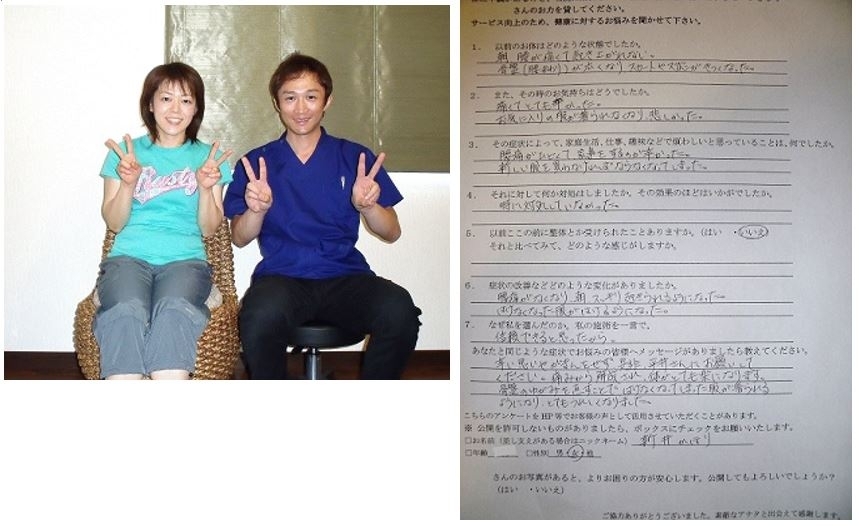 Rusty
さんのお力を貸してください。
サービス向上のため、健康に対するお悩みを聞かせて下さい。
1. 以前のお体はどのような状態でしたか。
朝 腰が痛くて起き上がれない。
骨盤(腰まわり)が広くなり スカートやズボンがきつくなった。
2. また、その時のお気持ちはどうでしたか。
痛くてとても辛かった。
お気に入りの服が着られなくなり、悲しかった。
3. その症状によって、家庭生活、仕事、趣味などで煩わしいと思っていることは、何でしたか。
腰痛がひどくて 家事をするのが辛かった。
新しい服を買わなければならなくなってしまった。
4. それに対して何か対処はしましたか。その効果のほどはいかがでしたか。
特に対処していなかった。
5. 以前ここの前に整体とか受けられたことありますか。(はい ・いいえ)
それと比べてみて、どのような感じがしますか。
6. 症状の改善などどのような変化がありましたか。
腰痛がなくなり、朝 スッキリ起きられるようになった。
はけなくなった服がはけるようになった。
7. なぜ私を選んだのか。私の施術を一言で。
信頼できると思ったから。
あなたと同じような症状でお悩みの皆様へメッセージがありましたら教えてください。
辛い思いやがまんをせず 是非 平井さんにお願いして
ください。痛みから解放され、体がとても楽になります。
骨盤のゆがみを直すことで はけなくなってしまった服が着られる
ようになり、とてもうれしくなりました。
こちらのアンケートをHP等でお客様の声として活用させていただくことがあります。
※ 公開を許可しないものがありましたら、ボックスにチェックをお願いいたします。
□お名前(差し支えがある場合はニックネーム) 新井
□年齢 □性別 男・女・他
さんのお写真があると、よりお困りの方が安心します。公開してもよろしいでしょうか?
(はい ・いいえ)
ご協力ありがとうございました。素敵なアナタと出会えて感謝します。